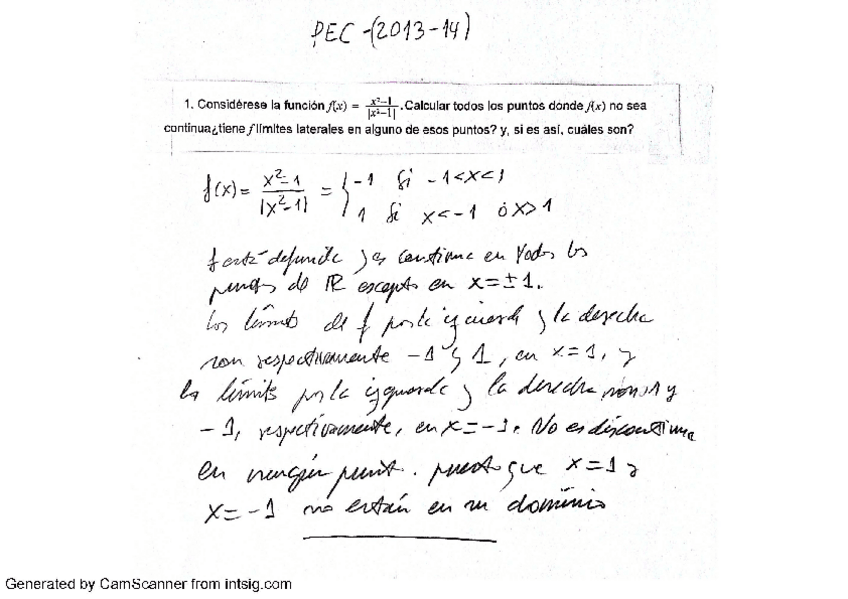 PEC-(2013-14)
1. Considérese la función f(x) = x²-1 / |x²-1| .Calcular todos los puntos dónde f(x) no sea
continua¿tiene f límites laterales en alguno de esos puntos? y, si es así, cuáles son?
f(x) = x²-1 / |x²-1| = { -1 si -1<x<1
1 si x<-1 ó x>1
f está definida y es continua en todos los
puntos de ℝ excepto en x=±1.
Los límites de f por la izquierda y la derecha
son respectivamente -1 y 1, en x=1, y
los límites por la izquierda y la derecha son 1 y
-1, respectivamente, en x=-1. No es discontinua
en ningún punto. puesto que x=1 y
x=-1 no están en su dominio
Generated by CamScanner from intsig.com